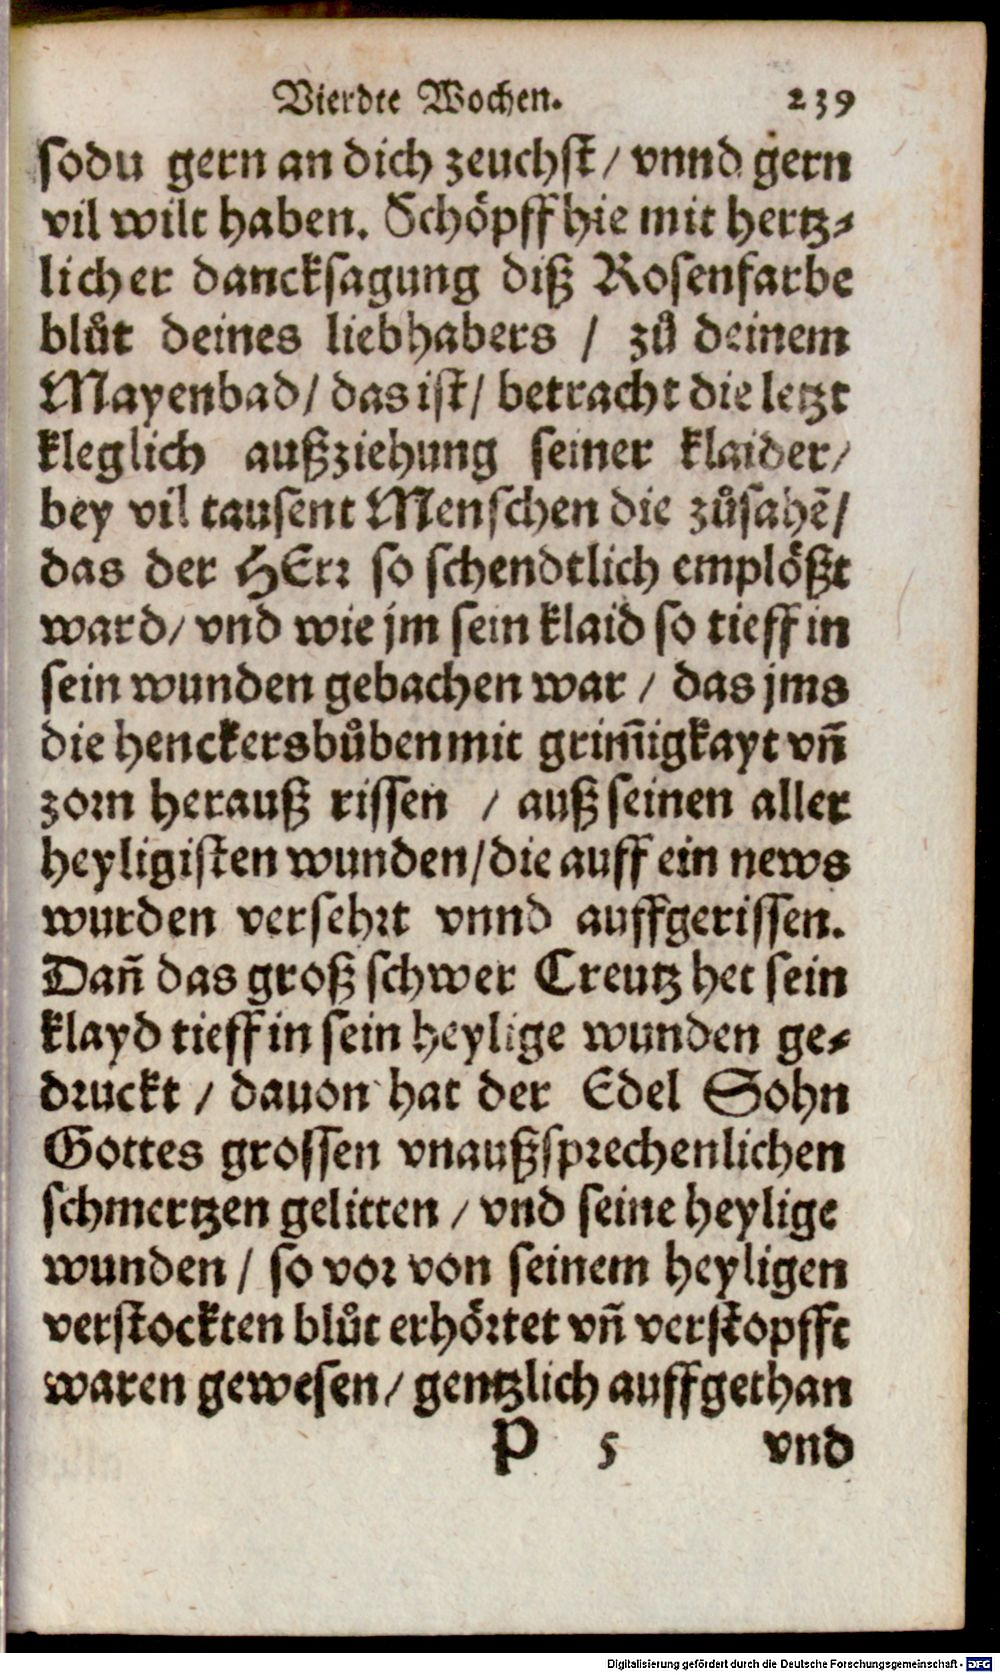 Vierdte Wochen. 239
sodu gern an dich zeuchst / vnnd gern
vil wilt haben. Schöpff hie mit hertz⸗
licher dancksagung diß Rosenfarbe
blůt deines liebhabers / zů deinem
Mayenbad / das ist / betracht die letzt
kleglich außziehung seiner klaider /
bey vil tausent Menschen die zůsahẽ /
das der HErr so schendtlich emplößt
ward / vnd wie jm sein klaid so tieff in
sein wunden gebachen war / das jms
die henckersbůben mit grim̃igkayt vñ
zorn herauß rissen / auß seinen aller
heyligisten wunden / die auff ein news
wurden versehrt vnnd auffgerissen.
Dañ das groß schwer Creutz het sein
klayd tieff in sein heylige wunden ge⸗
druckt / dauon hat der Edel Sohn
Gottes grossen vnaußsprechenlichen
schmertzen gelitten / vnd seine heylige
wunden / so vor von seinem heyligen
verstockten blůt erhörtet vñ verstopfft
waren gewesen / gentzlich auffgethan
P 5 vnd
Digitalisierung gefördert durch die Deutsche Forschungsgemeinschaft - DFG